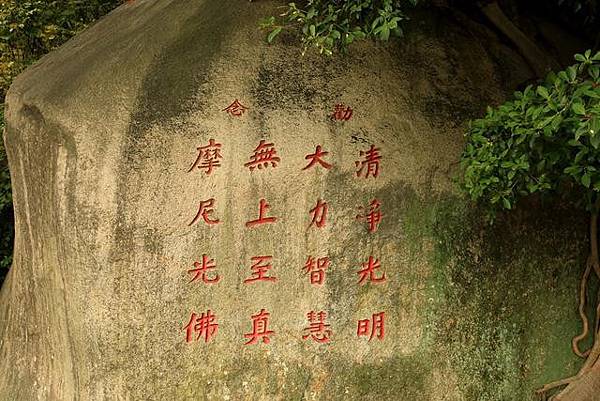 勸念
清净光明
大力智慧
無上至真
摩尼光佛